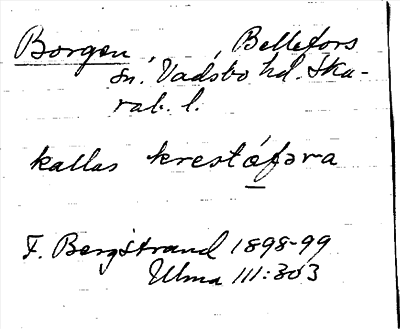 Borgen, Bellefors
sn. Vadsbo hd. Ska-
rab. l.
kallas krestófəra
F. Bergstrand 1898-99
Ulma 111:303